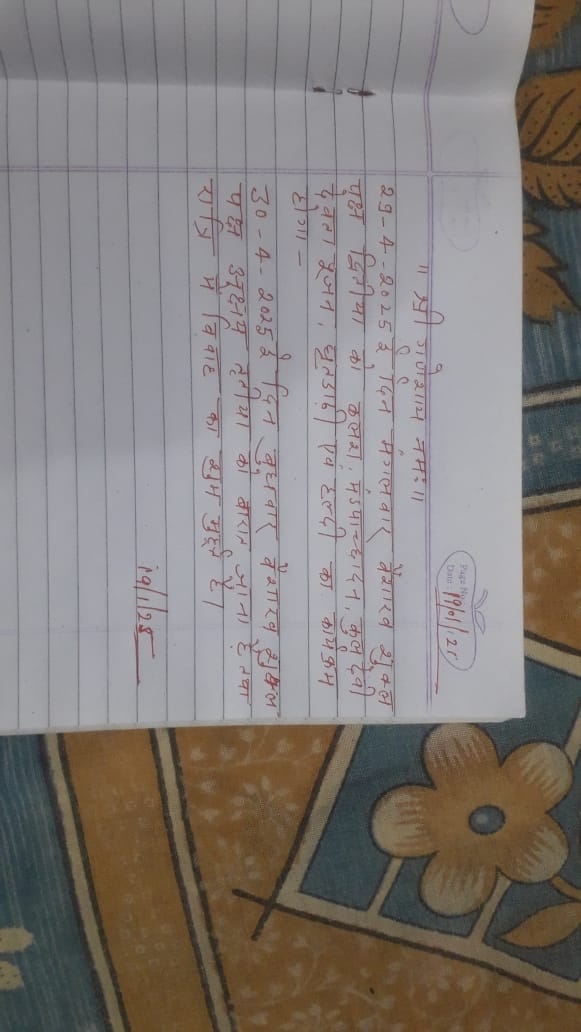 Page No.
Date 19/01/25
॥ श्री गणेशाय नमः॥
29-4-2025 ई दिन मंगलवार वैशाख शुक्ल
पक्ष द्वितीया को कलश, मंडपाच्छादन, कुल देवी
देवता पूजन, घृतढारी एवं हल्दी का कार्यक्रम
होगा -
30-4-2025 ई दिन बुधवार वैशाख शुक्ल
पक्ष अक्षय तृतीया को बारात आना है तथा
रात्रि में विवाह का शुभ मुहूर्त है।
19/1/25